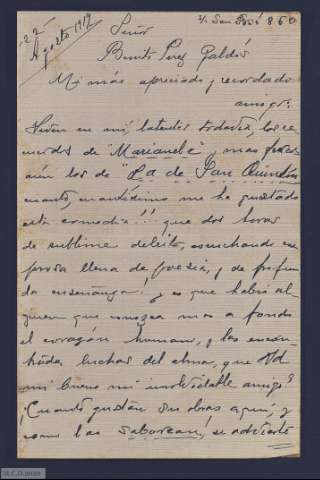 22
Agosto 1917
S/c San José 860
Señor
Benito Perez Galdós
Mi más apreciado y recordado
amigo:
Viven en mi, latentes todavía, los re-
cuerdos de "Marianela", y mas frescos
aún los de "La de San Quintín"
cuanto, cuantísimo me ha gustado
esta comedia!!! que dos horas
de sublime deleite, escuchando esa
prosa llena de poesía, y de profun-
da enseñanza! ¿y es que habrá al-
guien que conozca mas a fondo
el corazón humano, y las encon-
tradas luchas del alma, que Vd
mi bueno mi inolvidable amigo?
¡Cuanto gustan sus obras aquí; y
como las saborean!, se advierte